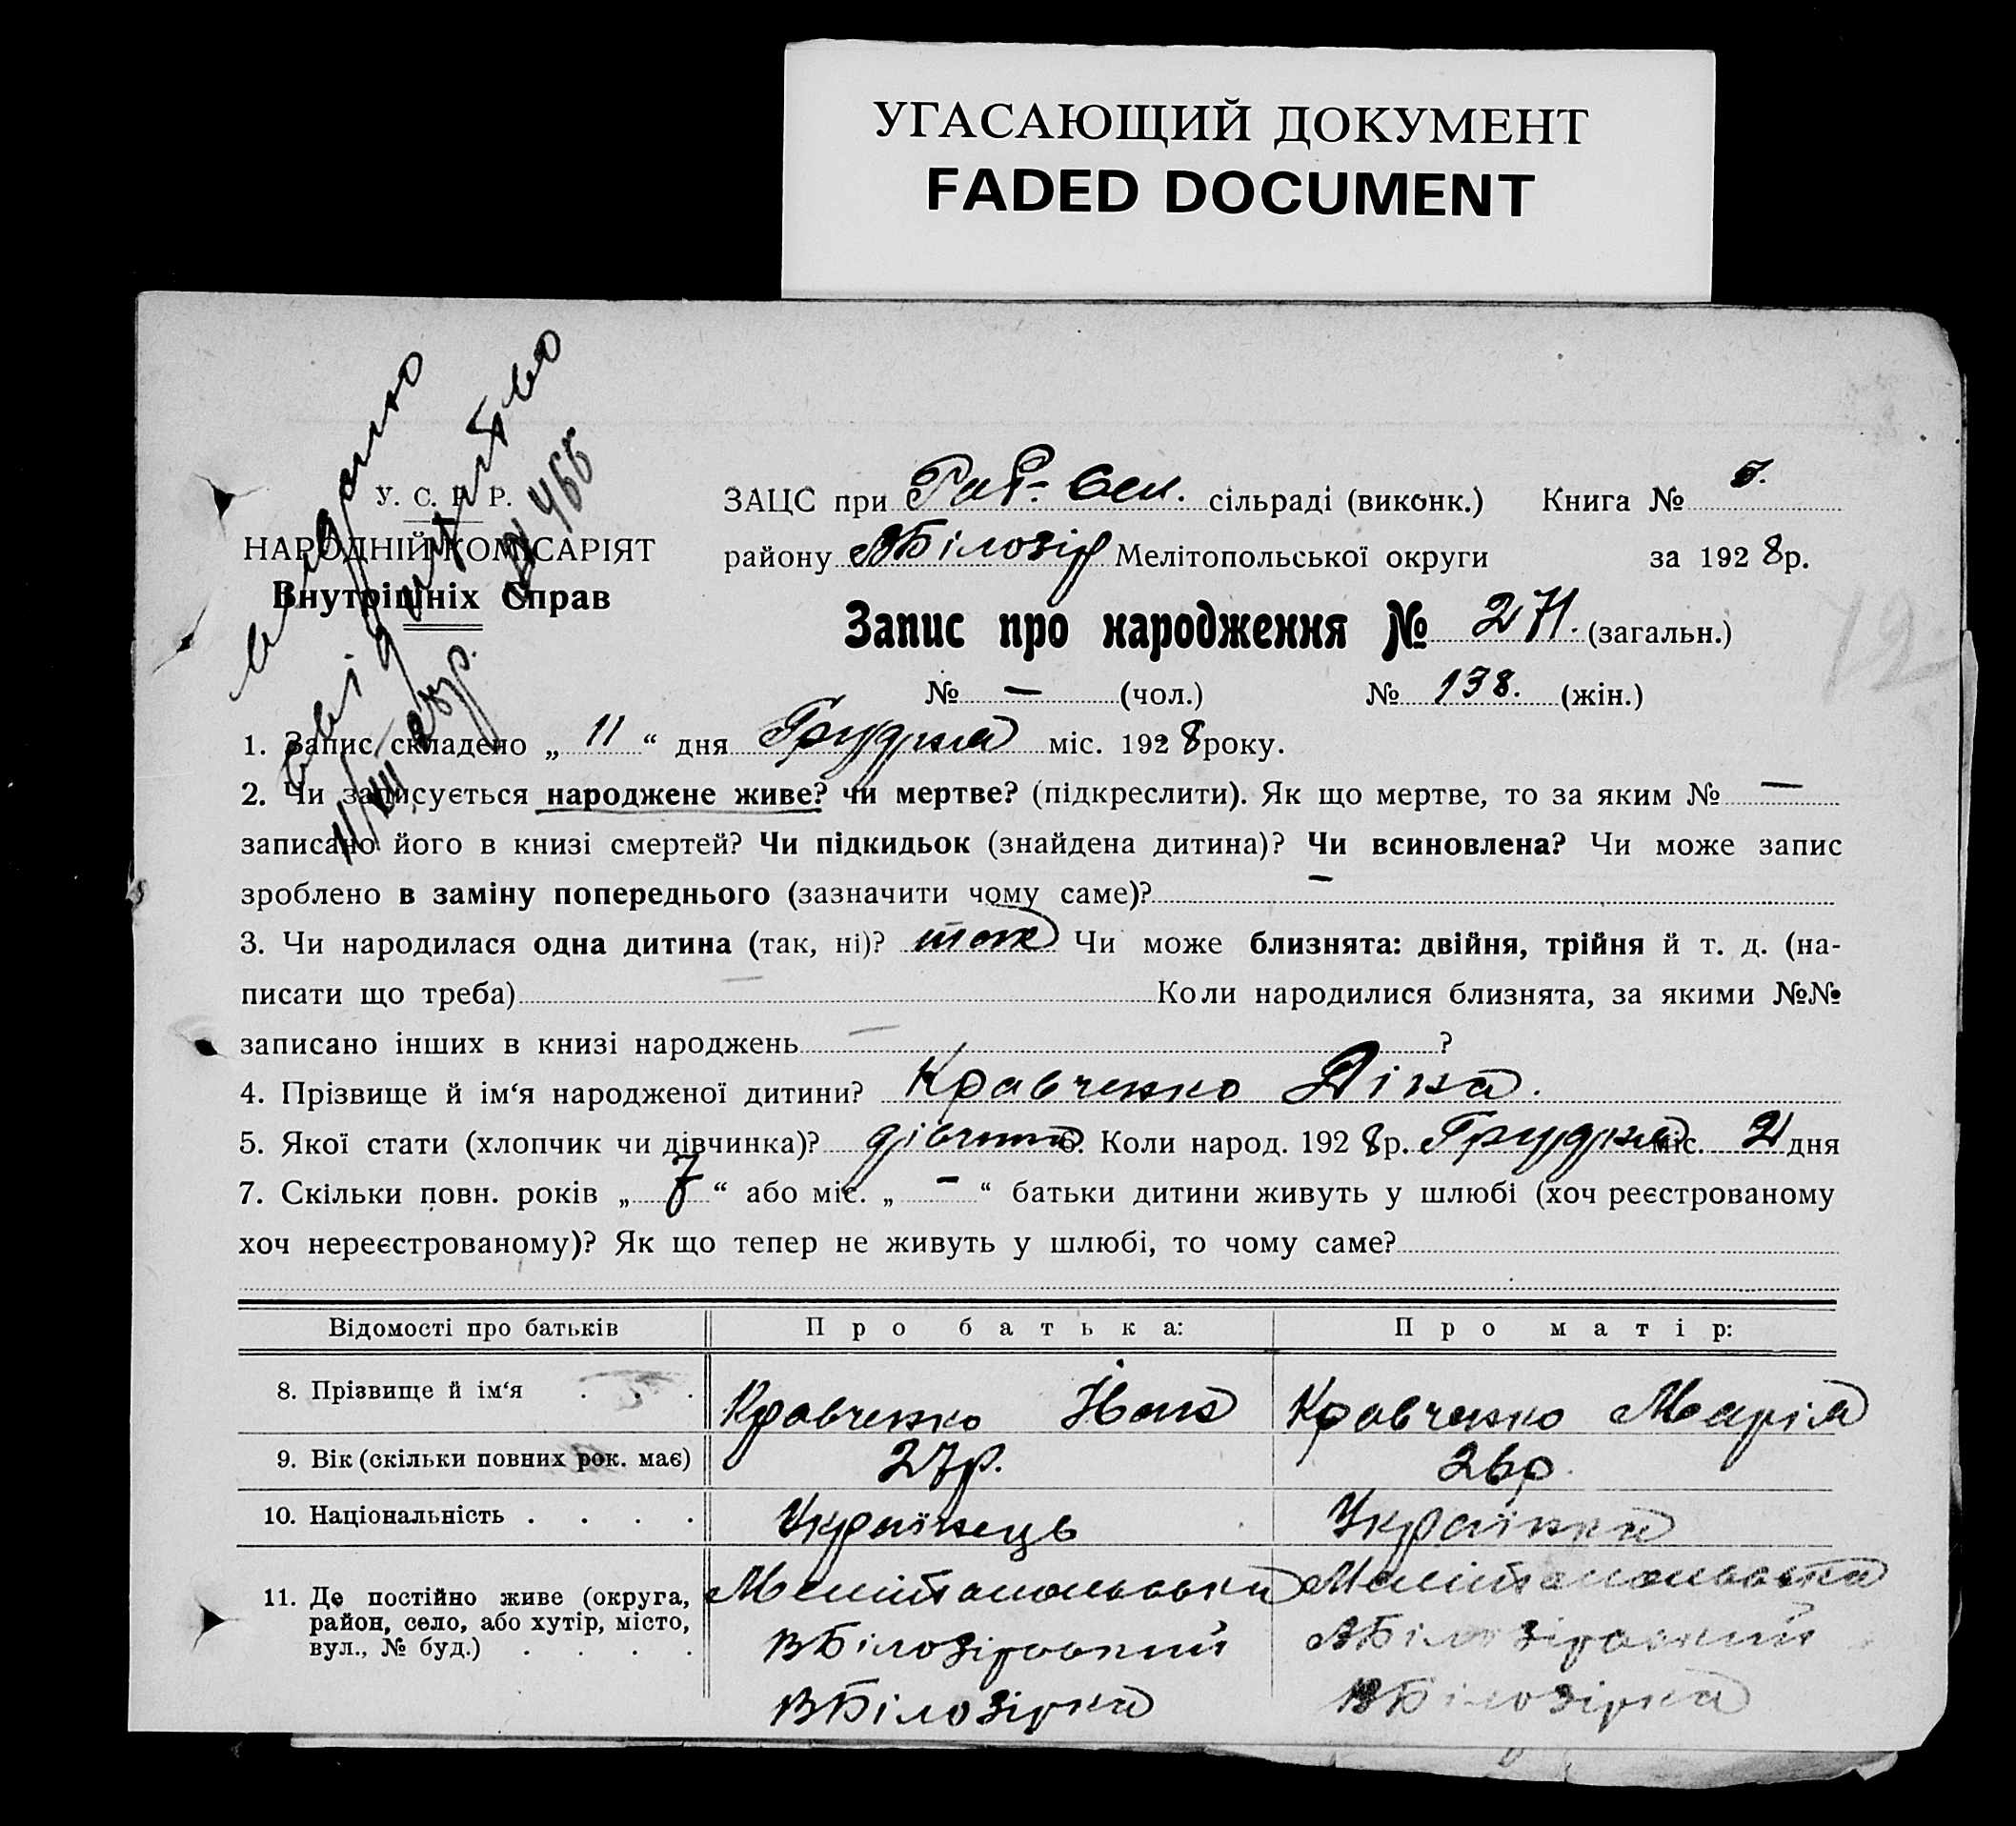 УГАСАЮЩИЙ ДОКУМЕНТ
FADED DOCUMENT
видано
свідоцтво
№ 466
11/XII 28р.
У. С. Р. Р.
НАРОДНІЙ КОМІСАРІЯТ
Внутрішніх Справ
ЗАЦС при сільраді (виконк.) Книга №
району ВБілозір Мелітопольської округи за 1928р.
Запис про народження № 271. (загальн.)
№ — (чол.) № 138. (жін.)
1. Запис складено „ 11 “ дня Грудня міс. 1928 року.
2. Чи записується народжене живе? чи мертве? (підкреслити). Як що мертве, то за яким № —
записано його в книзі смертей? Чи підкидьок (знайдена дитина)? Чи всиновлена? Чи може запис
зроблено в заміну попереднього (зазначити чому саме)? —
3. Чи народилася одна дитина (так, ні)? так Чи може близнята: двійня, трійня й т. д. (на-
писати що треба) — Коли народилися близнята, за якими №№
записано інших в книзі народжень — ?
4. Прізвище й ім‘я народженої дитини? Кравченко Ліна.
5. Якої стати (хлопчик чи дівчинка)? дівчина 6. Коли народ. 1928р. Грудня міс. 2 дня
7. Скільки повн. років „ 7 “ або міс. „ - “ батьки дитини живуть у шлюбі (хоч реєстрованому
хоч нереєстрованому)? Як що тепер не живуть у шлюбі, то чому саме?
Відомості про батьків Про батька: Про матір:
8. Прізвище й ім‘я . . . Кравченко Іван Кравченко Марія
9. Вік (скільки повних рок. має) 27р. 26р.
10. Національність . . . . Українець Українка
11. Де постійно живе (округа, Мелітопольська Мелітопольська
район, село, або хутір, місто, ВБілозірський ВБілозірський
вул., № буд.) . . . . ВБілозірка ВБілозірка